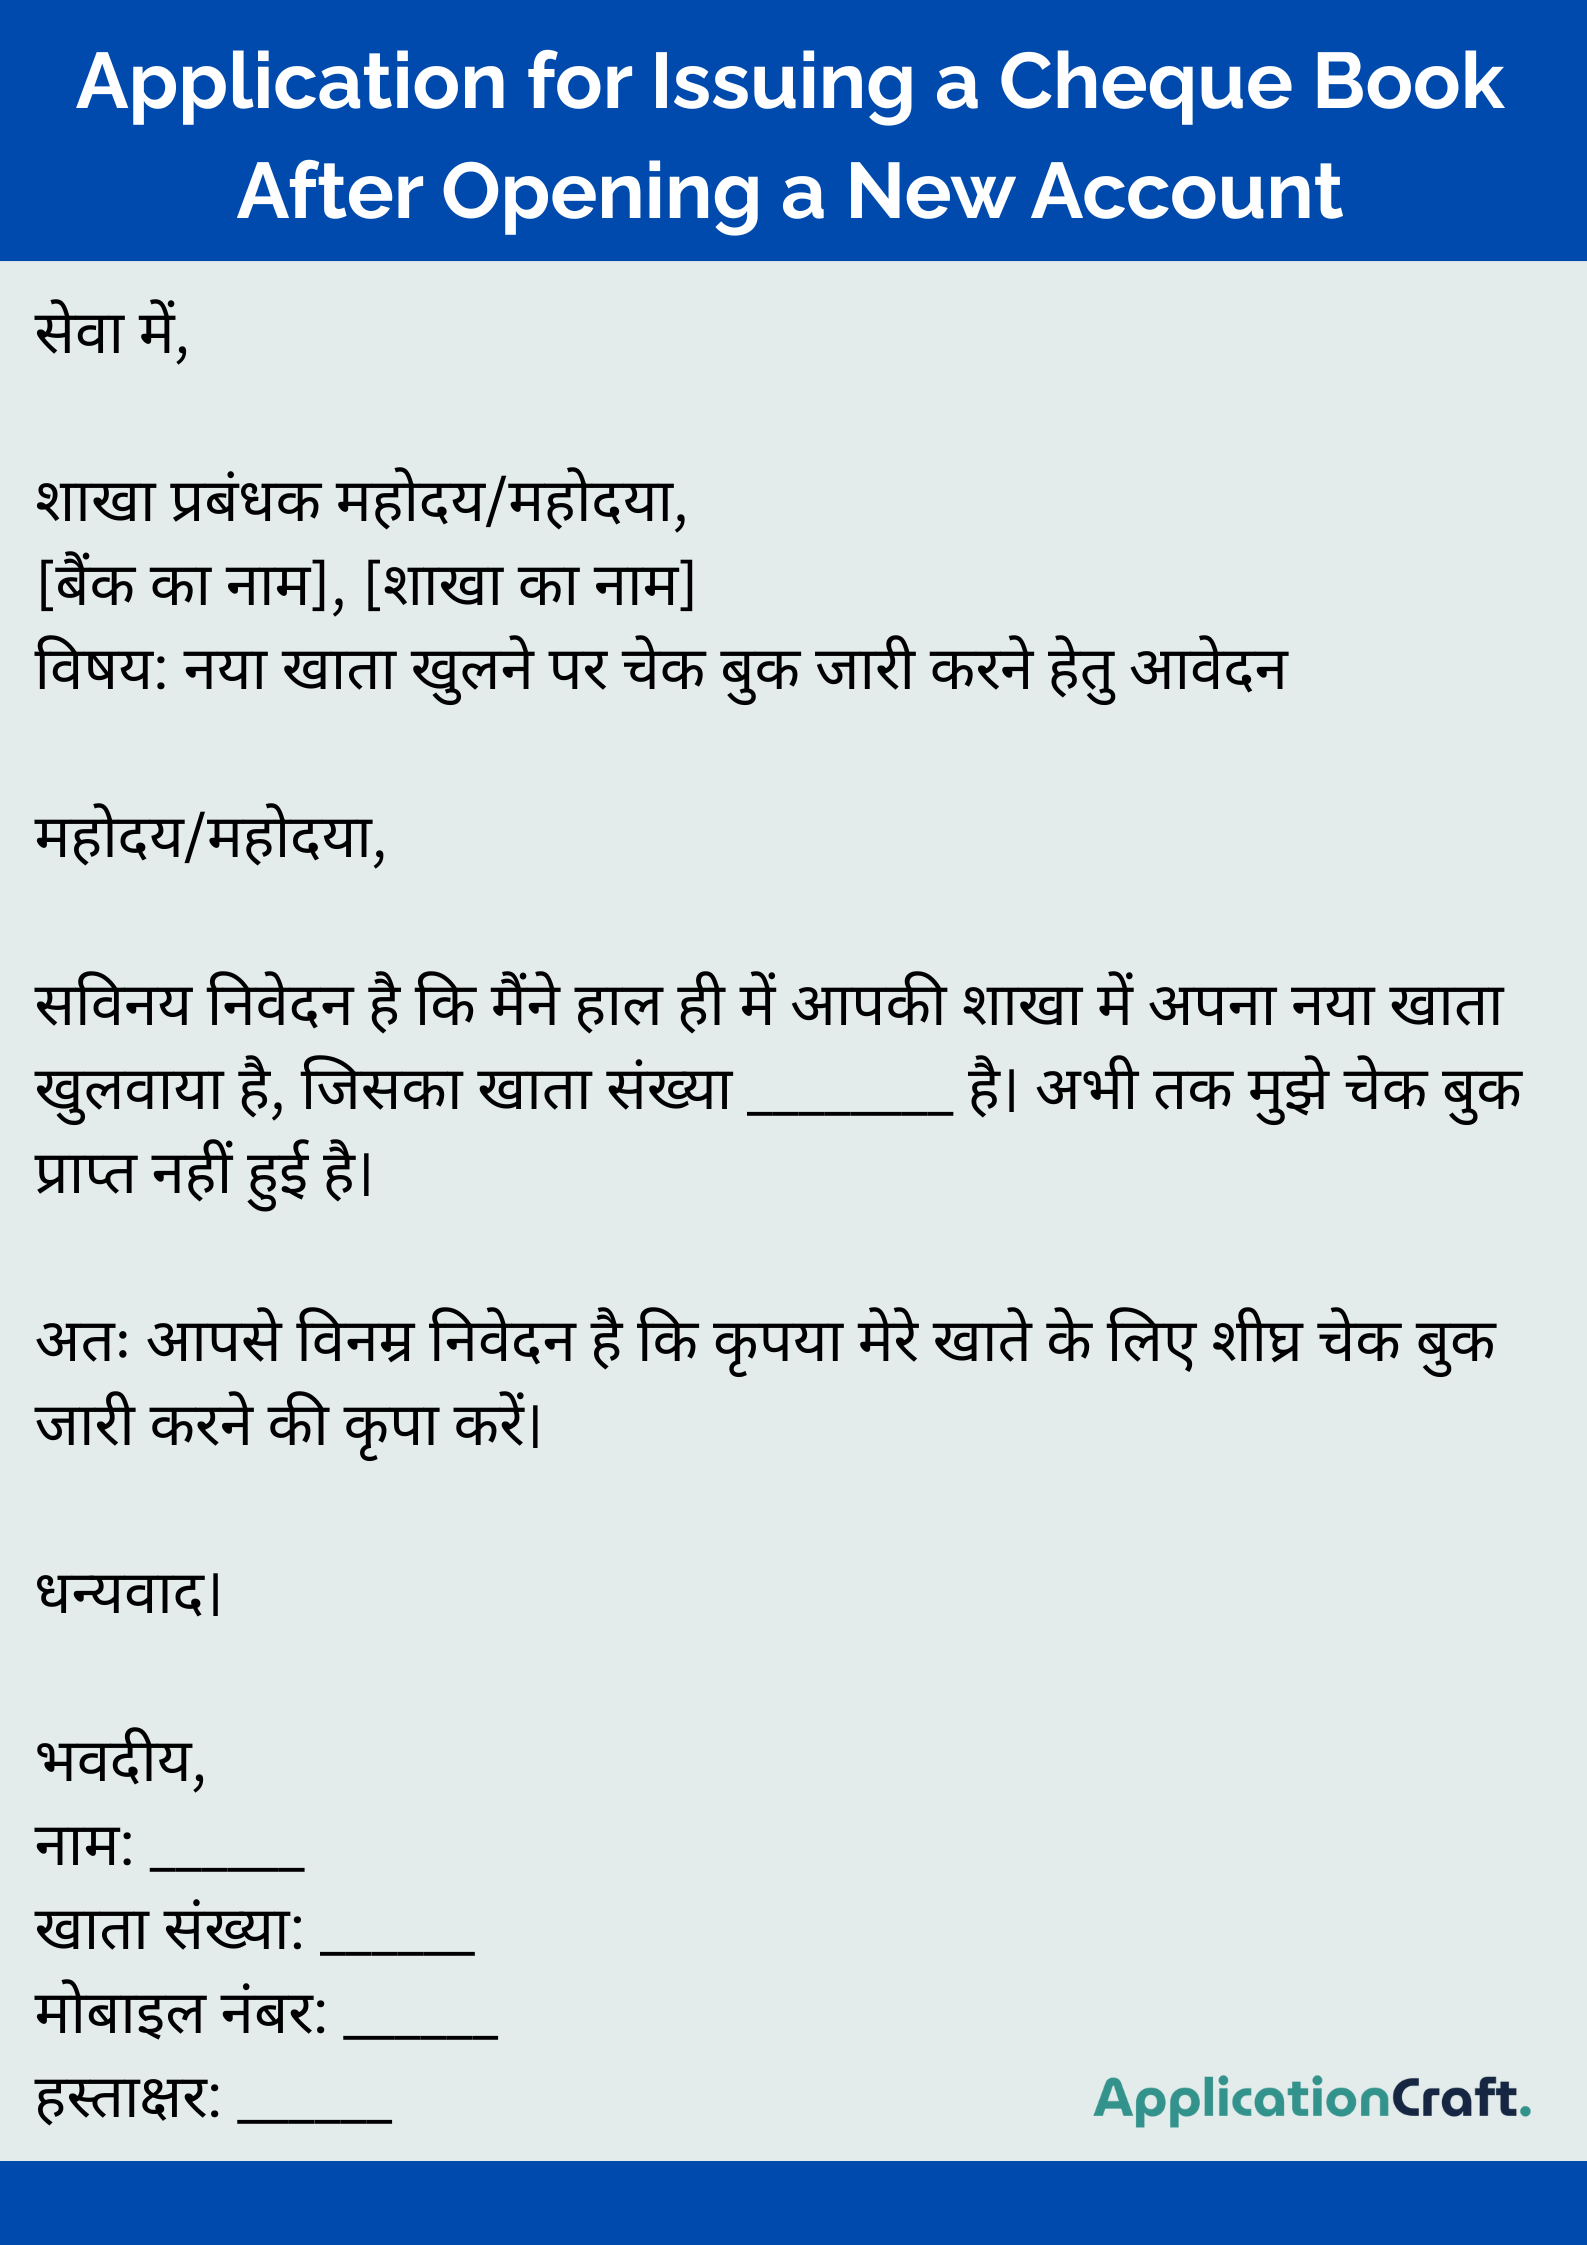 Application for Issuing a Cheque Book
After Opening a New Account
सेवा में,
शाखा प्रबंधक महोदय/महोदया,
[बैंक का नाम], [शाखा का नाम]
विषय: नया खाता खुलने पर चेक बुक जारी करने हेतु आवेदन
महोदय/महोदया,
सविनय निवेदन है कि मैंने हाल ही में आपकी शाखा में अपना नया खाता
खुलवाया है, जिसका खाता संख्या ________ है। अभी तक मुझे चेक बुक
प्राप्त नहीं हुई है।
अतः आपसे विनम्र निवेदन है कि कृपया मेरे खाते के लिए शीघ्र चेक बुक
जारी करने की कृपा करें।
धन्यवाद।
भवदीय,
नाम: ______
खाता संख्या: ______
मोबाइल नंबर: ______
हस्ताक्षर: ______
ApplicationCraft.